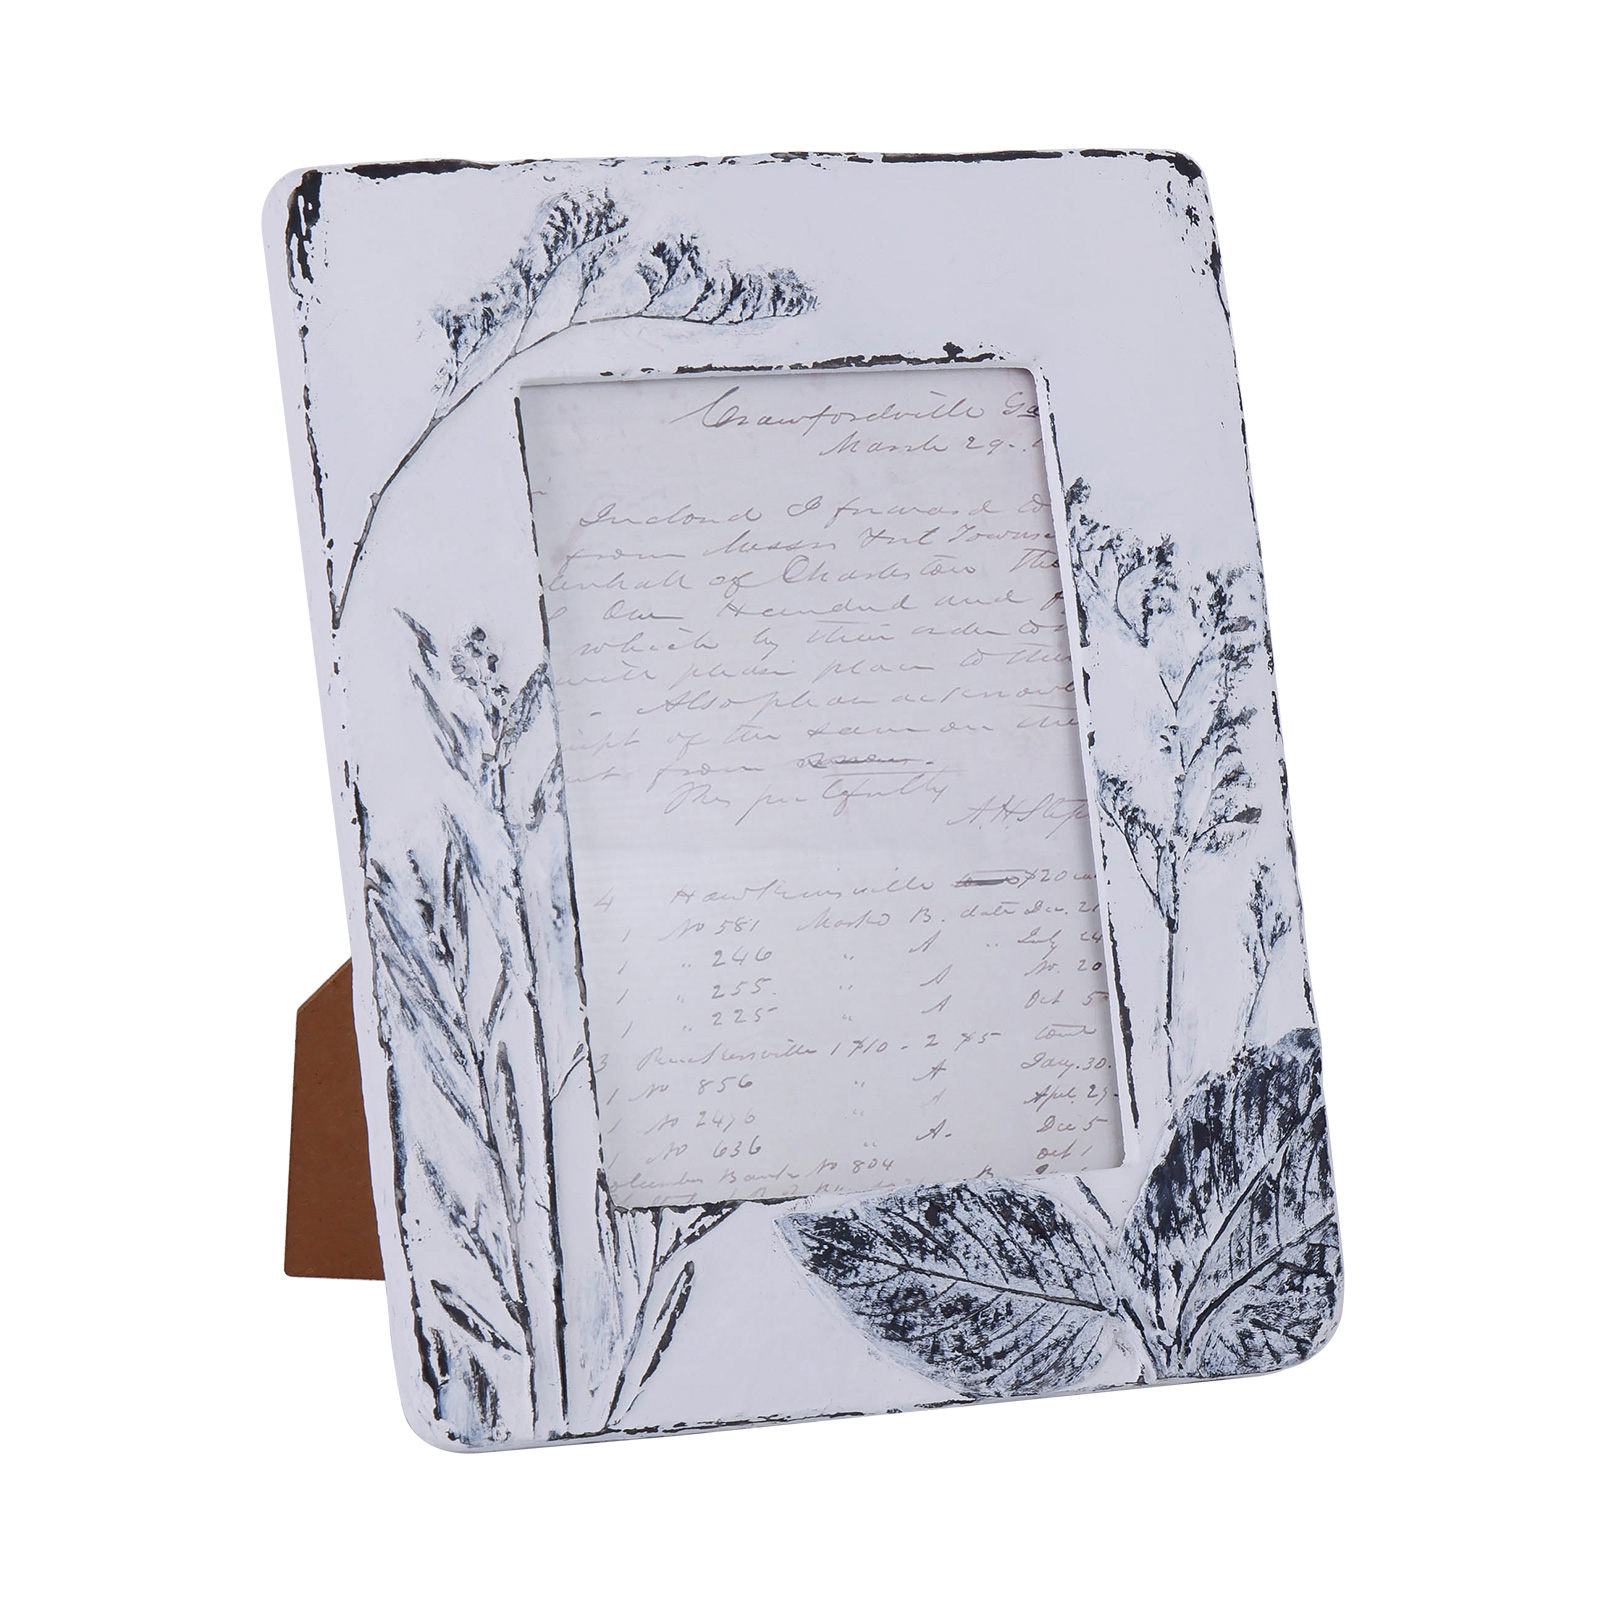 Crawfordville Ga
March 29
Inclosed I forward to
from Messrs
of Charleston The
One Hundred and
which by their order
with please place to their
Also please acknowl
of the same on the
from
Respectfully
A.H. Step
4 Hawkinsville $20
1 No 581 Marked B. date Dec. 21
1 " 246 " A " July 24
1 " 255 " A No. 20
1 " 225 " A Oct 5
3 Ruckersville 1 $10 - 2 $5
1 No 856 " A Jany. 30.
1 No 2496 " A Apl. 29
1 No 636 " A. Dec 5
Columbus Bank No 804 Oct 1
B